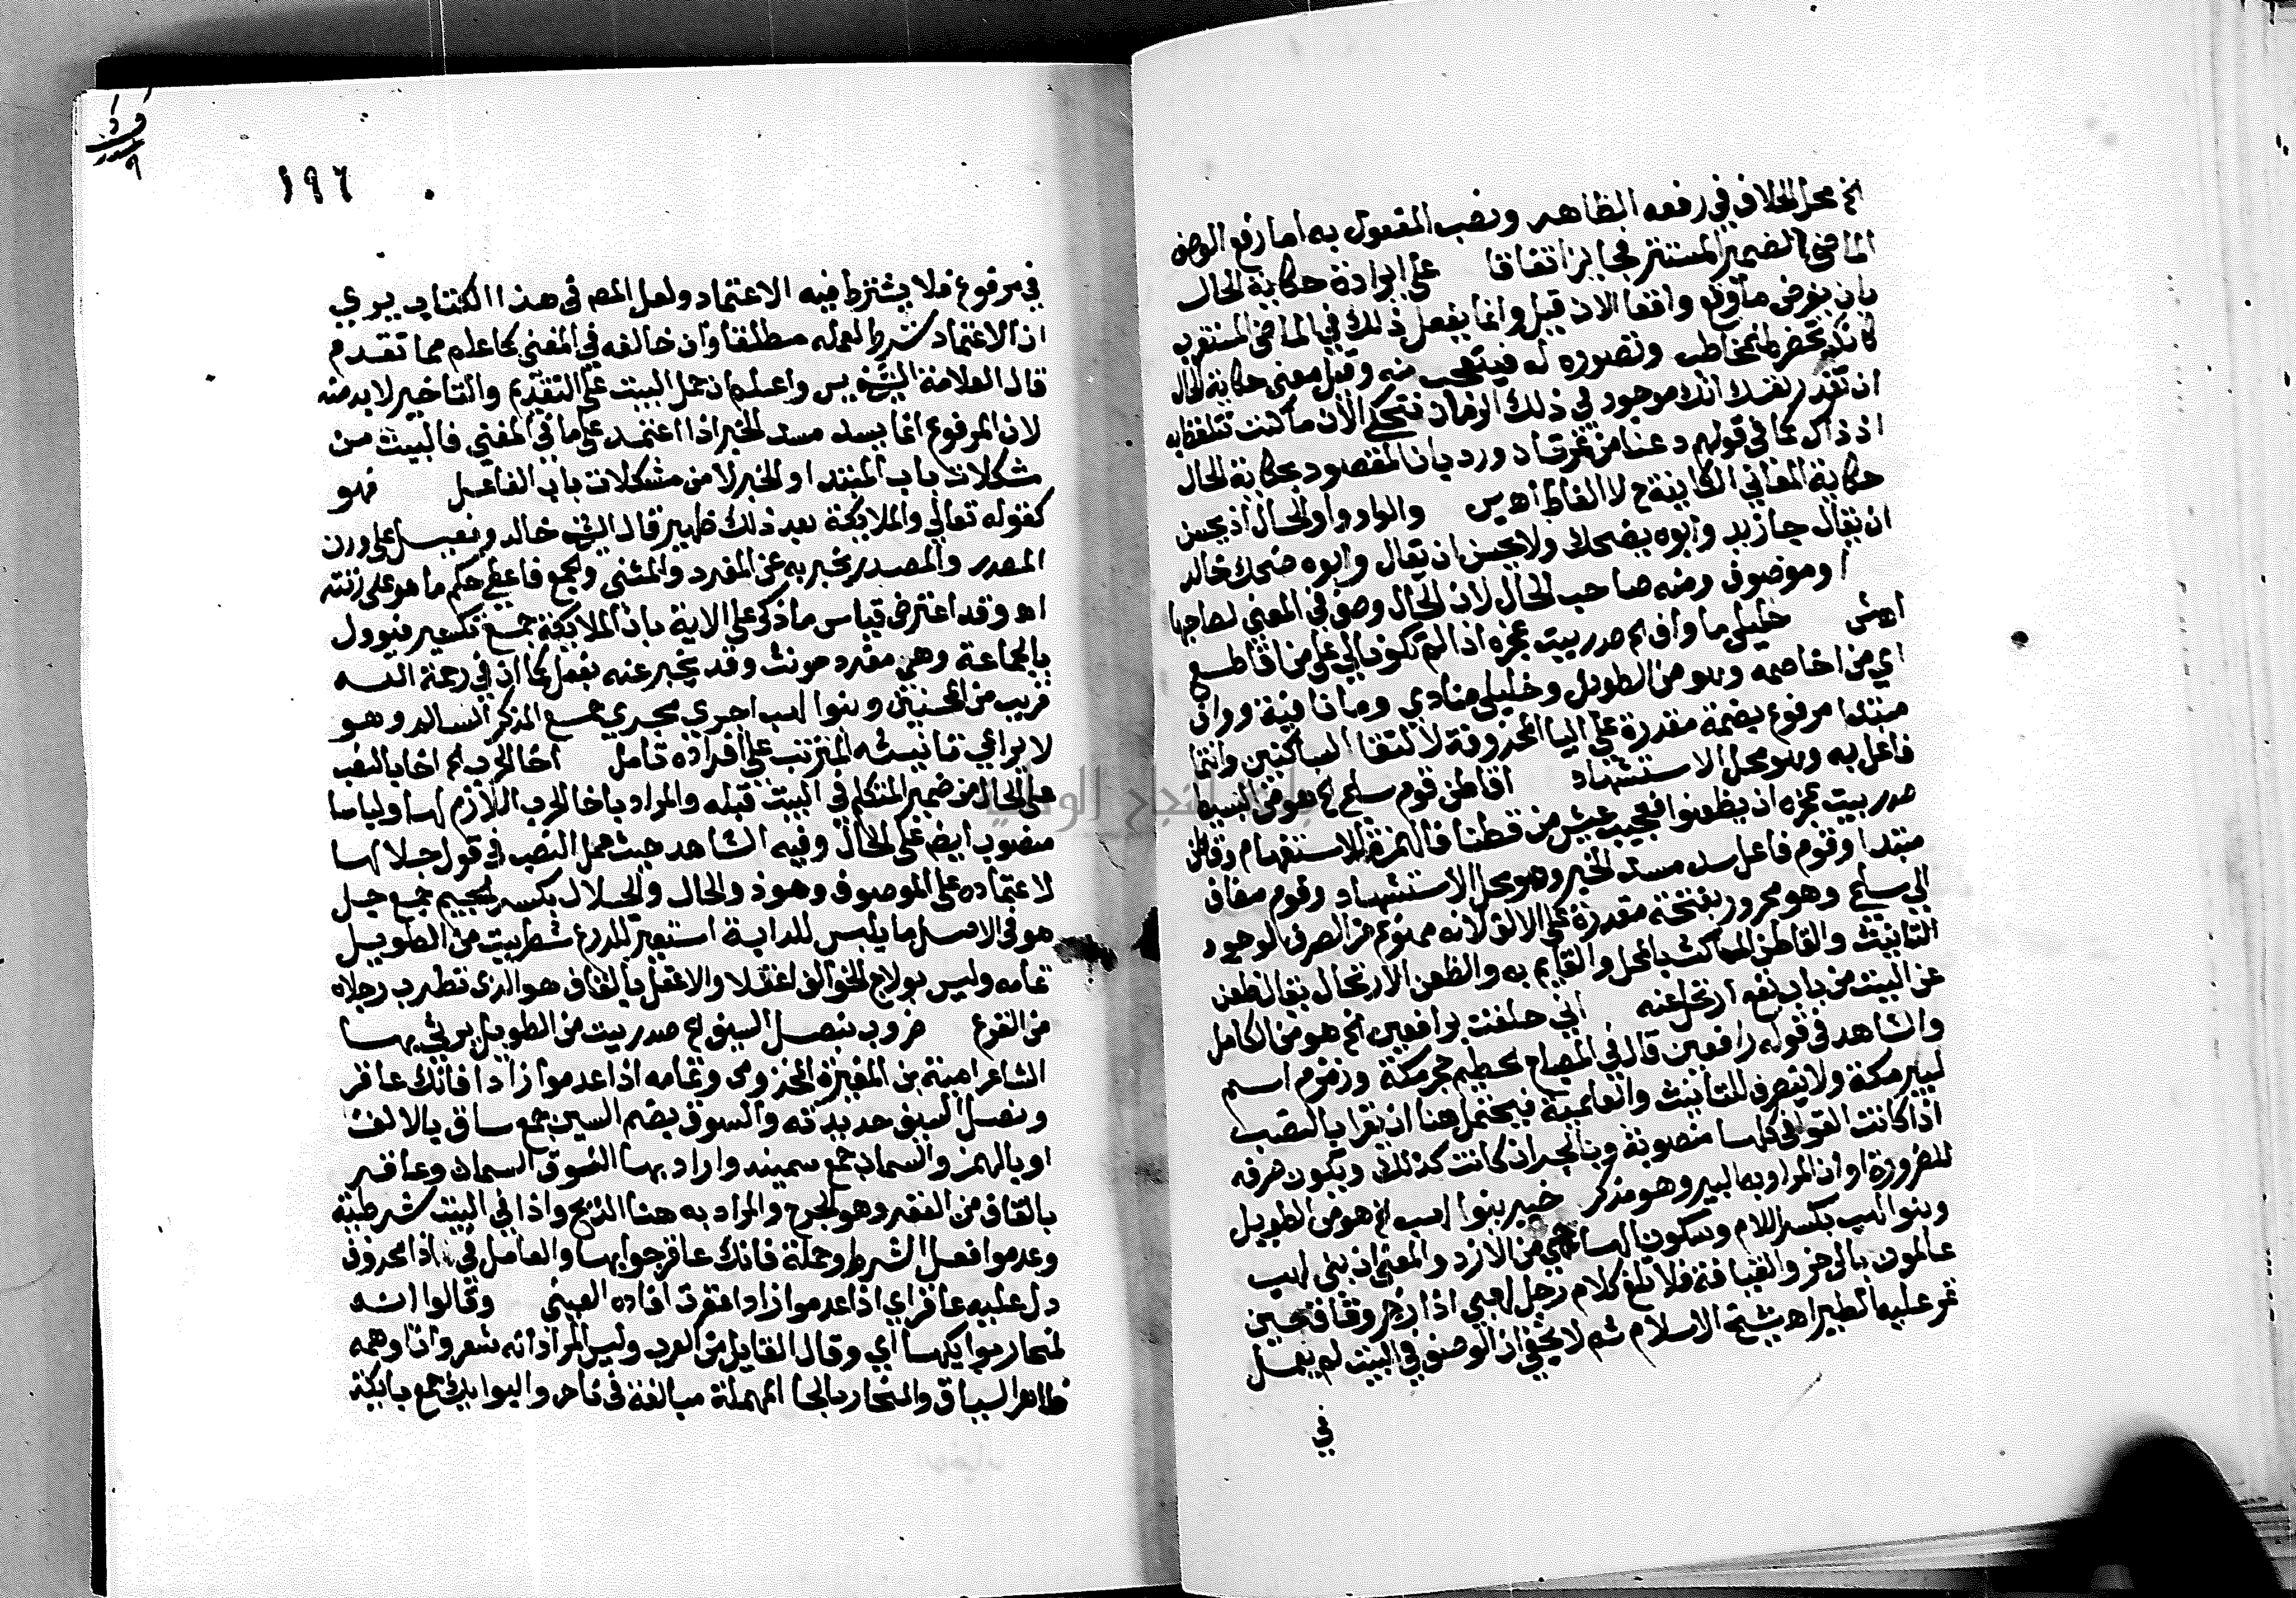 الخ محل الخلاف في رفعه الظاهر ونصب المفعول به اما رفع الوصف
الماضي الضمير المستتر فجايز اتفاقا على ارادة حكاية الحال
بان يفرض ما وقع واقعا الان قيل وانما يفعل ذلك في الماضي المستغرب
كانك تحضره للمخاطب وتصوره له فيتعجب منه وقيل معنى حكاية الحال
ان تقدر نفسك انك موجود في ذلك الزمان فتحكي الان ما كنت تتلفظ به
اذ ذاك كما في قولهم دعنا من تمرتان ورد بان المقصود بحكاية الحال
حكاية المعاني الكاينة ح لا الفاظ اه يس والواو واو الحال اذ يحسن
ان يقال جا زيد وابوه يضحك ولا يحسن ان يقال وابوه ضحك خالد
او موصوف ومنه صاحب الحال لان الحال وصف في المعنى لصاحبها
اه ش خليلي ما واف الخ صدر بيت عجزه اذا لم تكونا لي على من اقاطع
اي من اخاصمه وهو من الطويل وخليلي منادي وما نافية وواف
مبتدا مرفوع بضمة مقدرة على اليا المحذوفة لالتقا الساكنين وانتما
فاعل به وهو محل الاستشهاد اقاطن قوم سلمى الخ هو من البسيط
صدر بيت عجزه ان يظعنوا فعجيب عيش من قطنا فالهمزة للاستفهام وقاطن
مبتدا وقوم فاعل سد مسد الخبر وهو محل الاستشهاد وقوم مضاف
الى سلمى وهو مجرور بفتحة مقدرة على الالف لانه ممنوع من الصرف لوجود
التانيث والقاطن الماكث بالمحل والقايم به والظعن الارتحال يقال ظعن
عن البيت من باب نفع ارتحل عنه اني حلفت برافعين الخ هو من الكامل
والشاهد في قوله رافعين قال في المصباح الحطيم حجر مكة وزمزم اسم
لبير مكة ولا ينصرف للتانيث والعلمية فيحتمل هنا ان يقرا بالنصب
اذا كانت القوافي كلها منصوبة وبالجر ان كانت كذلك ويكون صرفه
للضرورة او ان المراد به البير وهو مذكر خبير بنوا لهب الخ هو من الطويل
وبنوا لهب بكسر اللام وسكون الها حي من الازد والمعنى ان بني لهب
عالمون بالزجر والقيافة فلا تلغ كلام رجل لهبي اذا زجر وقاف حين
تمر عليه الطير اه شيخ الاسلام ثم لا يخفى ان الوصف في البيت لم يعمل
في
١٩٦
في مرفوع فلا يشترط فيه الاعتماد ولعل المص في هذا الكتاب يري
ان الاعتماد شرط لعمله مطلقا وان خالفه في المغني كما علم مما تقدم
قال العلامة الشيخ يس واعلم ان حمل البيت على التقديم والتاخير لا بد منه
لان المرفوع انما يسد مسد الخبر اذا اعتمد على ما في المغني فالبيت من
مشكلات باب المبتدا والخبر لا من مشكلات باب الفاعل فهو
كقوله تعالى والملايكة بعد ذلك ظهير قال الشيخ خالد وفعيل على وزن
المصدر والمصدر يخبر به عن المفرد والمثنى والجمع فاعطي حكم ما هو على زنته
اه وقد اعترض قياس ما ذكر على الاية بان الملايكة جمع تكسير فيوول
بالجماعة وهي مفرد مونث وقد يخبر عنه بفعيل كما ان في رحمة الله
قريب من المحسنين وبنوا لهب اجري مجري جمع المذكر السالم وهو
لا يراعي تانيثه المترتب على افراده تامل اخا الحرب الخ اخا بالنصب
على الحال من ضمير المتكلم في البيت قبله والمراد باخا الحرب اللازم لها ولباسا
منصوب ايضا على الحال وفيه الشاهد حيث عمل النصب في قول جلالها
لاعتماده على الموصوف وهو ذو الحال والجلال بكسر الجيم جمع جل
هو في الاصل ما يلبس للدابة استعير للدرع شطر بيت من الطويل
تمامه وليس بولاج الخوالف اعقلا والاعقل بالقاف هو الذي تضطرب رجلاه
من الفزع ضروب بنصل السيف الخ صدر بيت من الطويل يرثي بها
الشاعر امية بن المغيرة المخزومي وتمامه اذا عدموا زادا فانك عاقر
ونصل السيف حديدته والسوق بضم السين جمع ساق بالالف
او بالهمز والسمان جمع سمينه واراد بها النوق السمان وعاقر
بالقاف من العقر وهو الجرح والمراد به هنا الذبح واذا في البيت شرطية
وعدموا فعل الشرط وجملة فانك عاقر جوابها والعامل في اذا محذوف
دل عليه عاقر اي اذا عدموا زادا عقرت افاده العيني وقالوا انه
لمنحار بوايكها اي وقال القايل من العرب وليس المراد انه شعر وان اوهمه
ظاهر السياق والمنحار بالحا المهملة مبالغة في ناحر والبوايك جمع بايكة